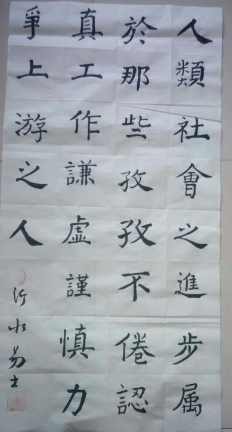 人類社會之進步属
於那些孜孜不倦認
真工作謙虛謹慎力
爭上游之人